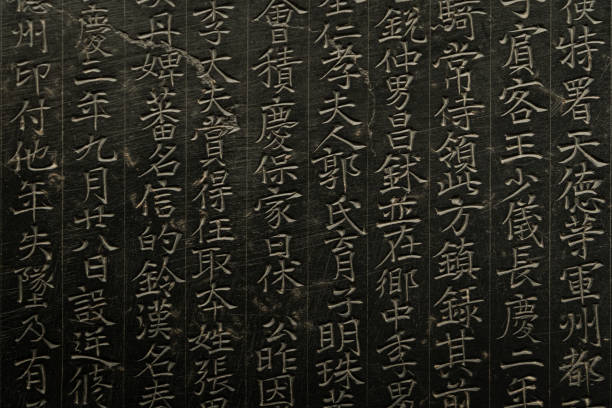 使特署天德等軍州都
子賓客王少儀長慶二年
騎常侍領此方鎮録其前
銳仲男昌鉢並在鄉中季男
仁孝夫人郭氏育子明珠
會積慶保家日休 公昨因
李大夫賞得任取本姓張男
丹婢蕃名信的鈴漢名春
慶二年九月廿八日設修
德州印付他年失墜及有